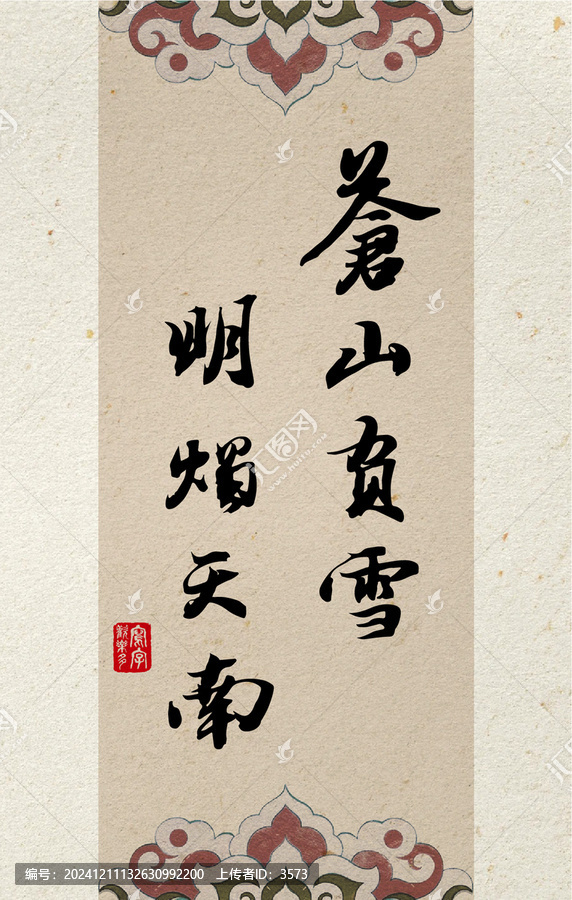 蒼山負雪
明燭天南
寫字
歡樂多
汇图网
www.huitu.com
编号：20241211132630992200 上传者ID：3573